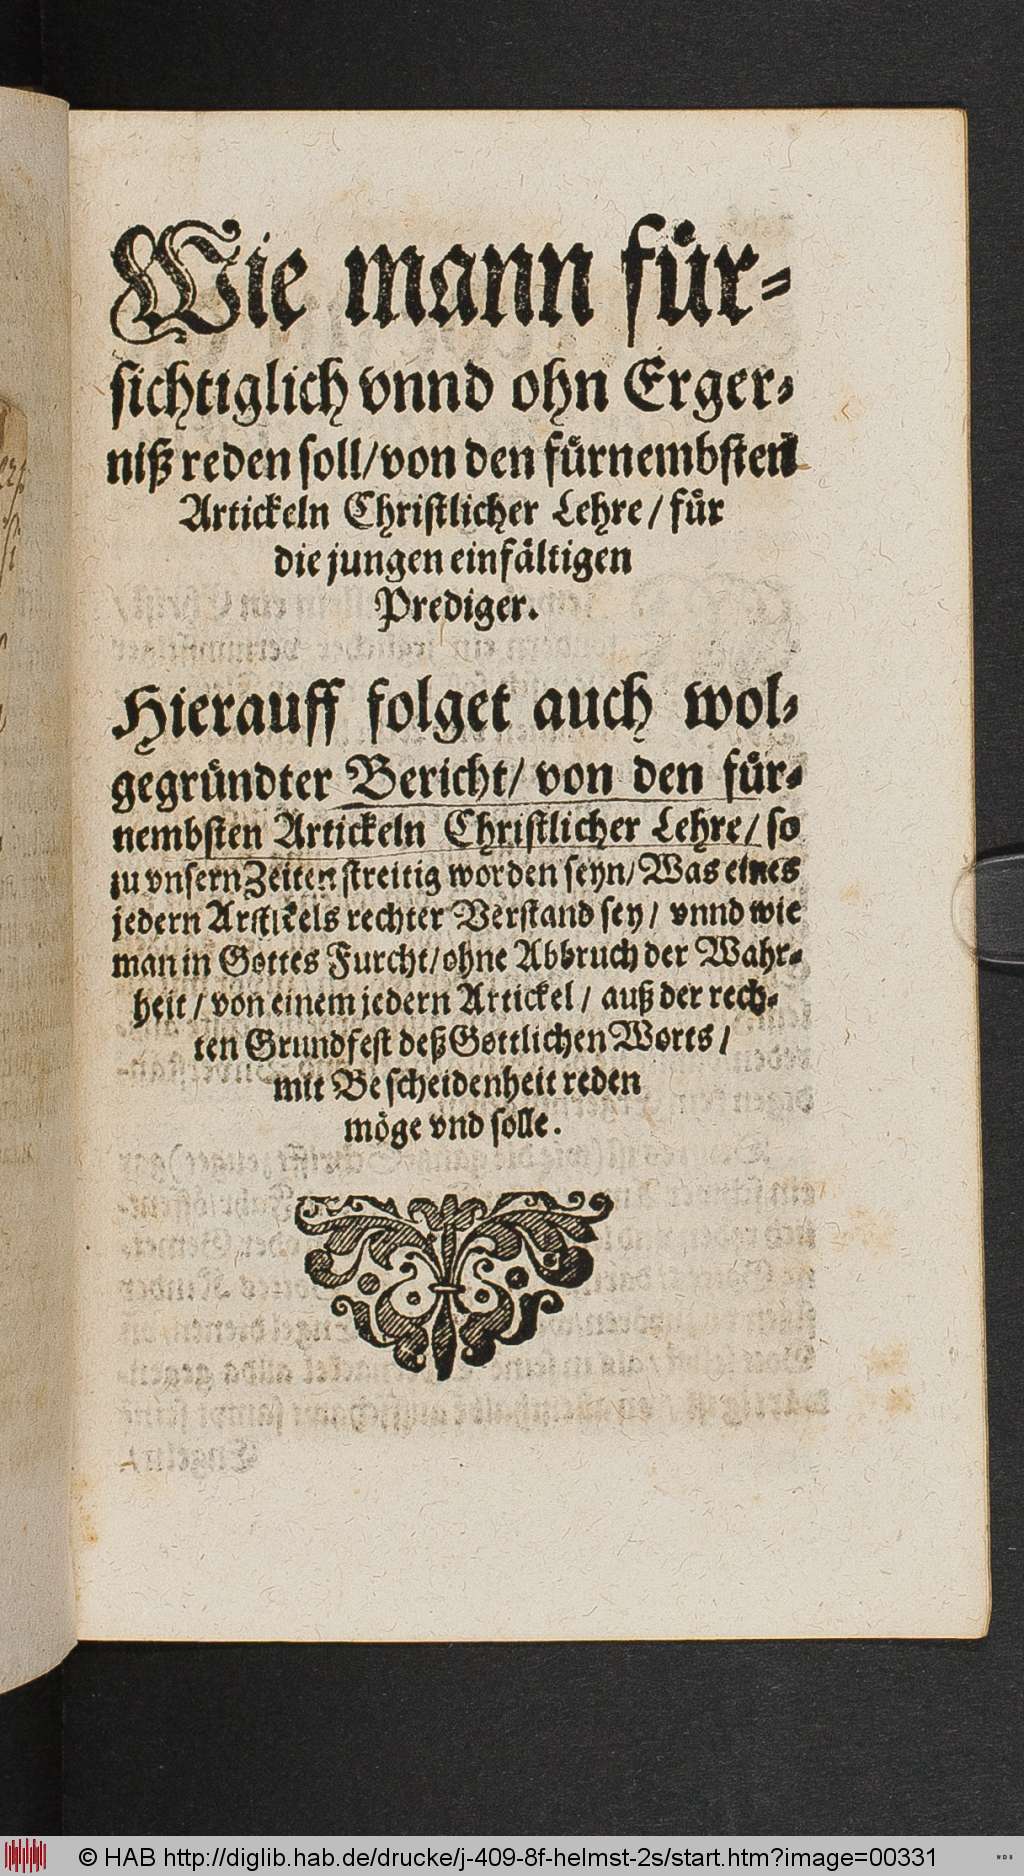 Wie mann für-
sichtiglich vnnd ohn Erger-
niß reden soll/ von den fürnembsten
Artickeln Christlicher Lehre/ für
die jungen einfältigen
Prediger.
Hierauff folget auch wol-
gegründter Bericht/ von den für-
nembsten Artickeln Christlicher Lehre/ so
zu vnsern Zeiten streitig worden seyn/ Was eines
jedern Artickels rechter Verstand sey/ vnnd wie
man in Gottes Furcht/ ohne Abbruch der Wahr-
heit/ von einem jedern Artickel/ auß der rech-
ten Grundfest deß Göttlichen Worts/
mit Bescheidenheit reden
möge vnd solle.
© HAB http://diglib.hab.de/drucke/j-409-8f-helmst-2s/start.htm?image=00331